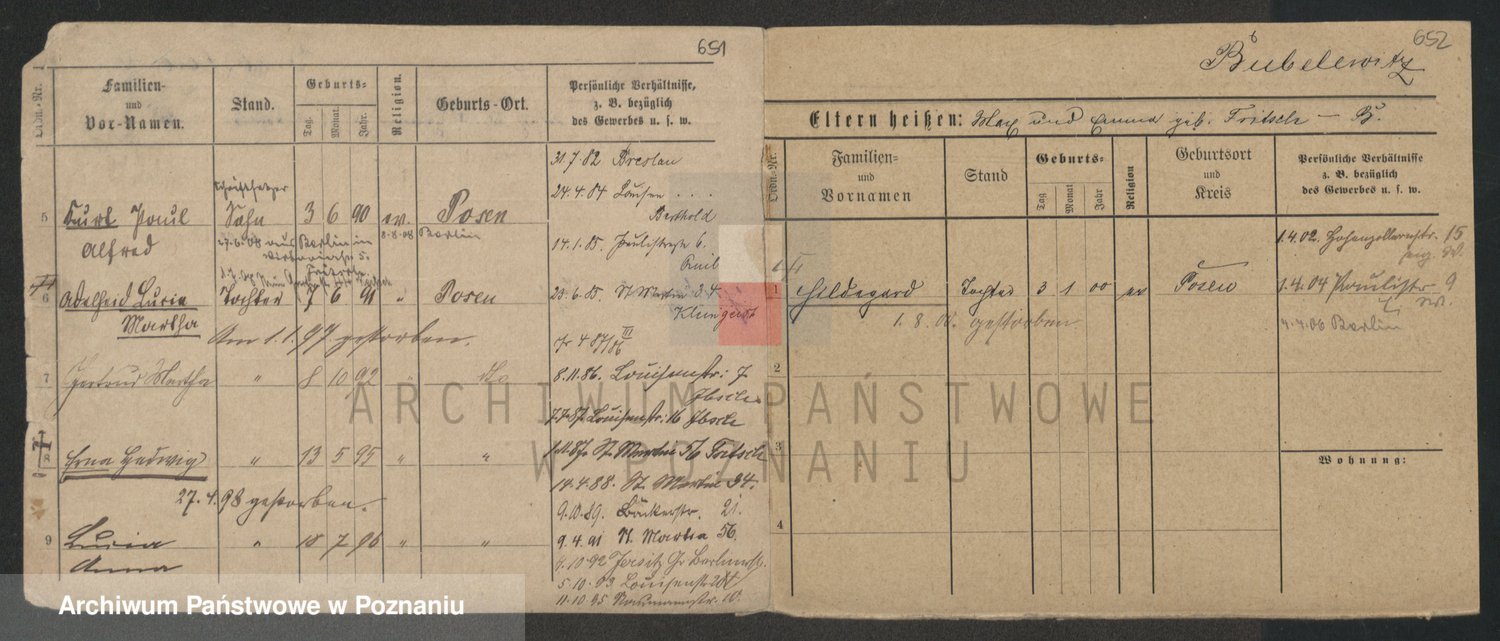 651
Lfdn.-Nr.
Familien-
und
Vor-Namen.
Stand.
Geburts-
Tag.
Monat.
Jahr.
Religion.
Geburts-Ort.
Persönliche Verhältnisse,
z. B. bezüglich
des Gewerbes u. s. w.
31.7.82 Breslau
24.4.84 Louisen ....
Berthold
5 Kurt Paul Alfred
Schriftsetzer
Sohn 3 6 90 ev. Posen
27.6.08 aus Berlin in
8.8.08 Berlin
14.1.85
6 Adelheid Lucie Martha
Tochter 7 6 91 " Posen
Am 1.1.97 gestorben.
St. Martin 34
7 Gertrud Martha " 8 10 92 " dto
8.11.86. Louisenstr: 7
Louisenstr: 16
8 Erna Hedwig " 13 5 95 " "
27.4.98 gestorben.
St. Martin 56 Fritsch
14.4.88. St. Martin 34.
9.10.89. Bäckerstr. 21.
9 Lucia Anna " 18 7 96 " "
9.4.91 St. Martin 56.
9.10.92 Jersitz Gr. Berlinerstr.
5.10.93 Louisenstr
11.10.95 Naumannstr. 10.
652
Bubelewitz
Eltern heißen: Max und Emma geb. Fritsch - B.
Ordn.-Nr.
Familien-
und
Vornamen
Stand
Geburts-
Tag
Monat
Jahr
Religion
Geburtsort
und
Kreis
Persönliche Verhältnisse
z. B. bezüglich
des Gewerbes u. s. w.
1.4.02. Hohenzollernstr. 15
1 Hildegard Tochter 3 1 00 ev Posen
1.4.04 Paulistr 9
1.8.00. gestorben.
4.4.06 Berlin
2
3
Wohnung:
4
ARCHIWUM PAŃSTWOWE
W POZNANIU
Archiwum Państwowe w Poznaniu